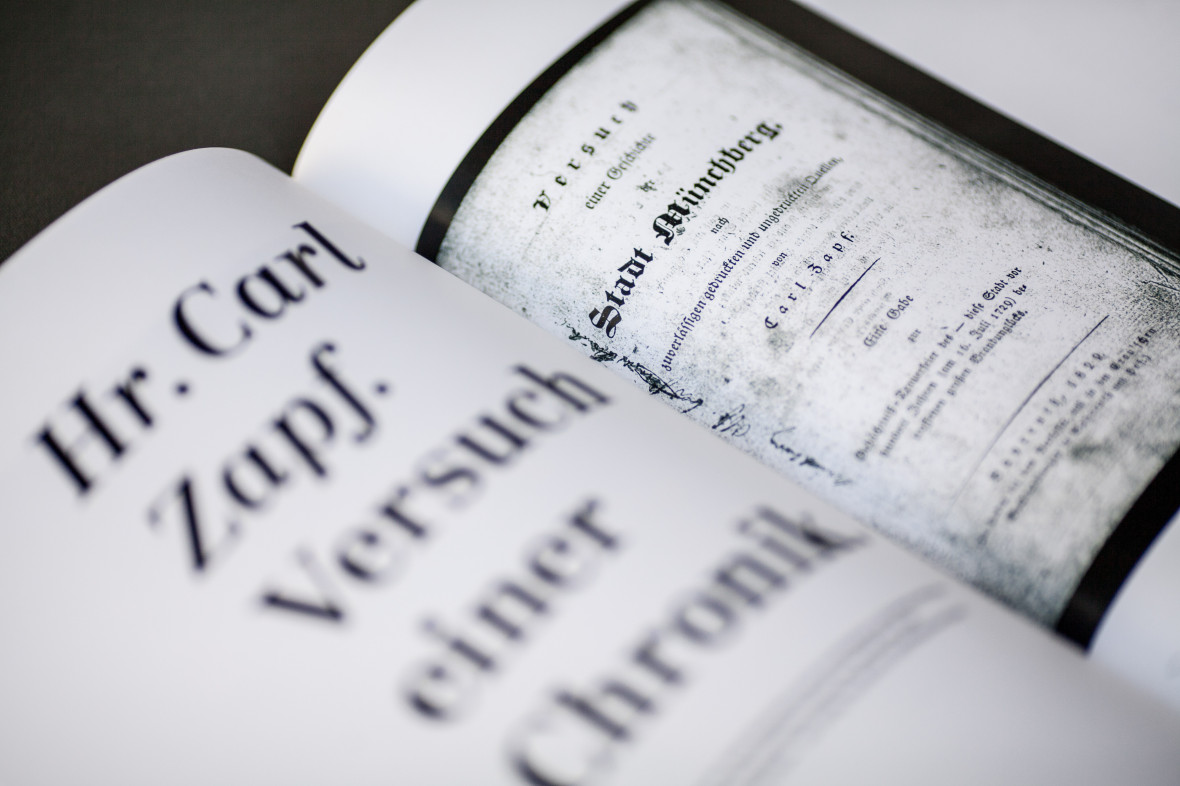 Hr. Carl
Zapf.
Versuch
einer
Chronik
Versuch
einer Geschichte
der
Stadt Münchberg,
nach
zuverlässigen gedruckten und ungedruckten Quellen,
von
Carl Zapf.
Eine Gabe
zur
diese Stadt vor
Jahren vom 16. Juli 1729) be-
troffenen großen Brandunglücks.